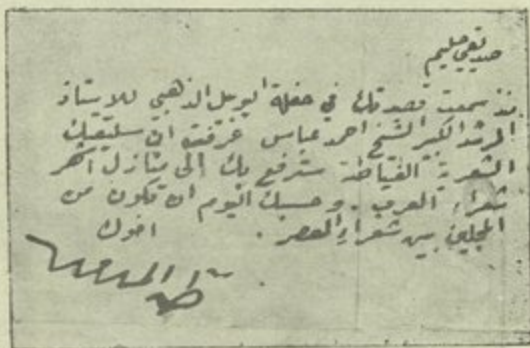 صديقي حليم
منذ سمعت قصيدتك في حفلة اليوبيل الذهبي للاستاذ
المرشد الكبير الشيخ احمد عباس عرفت ان سليقتك
الشعرية الفياضة سترفع بك إلى منازل اكبر
شعراء العرب. وحسبك اليوم ان تكون من
المجلين بين شعراء العصر.
اخوك